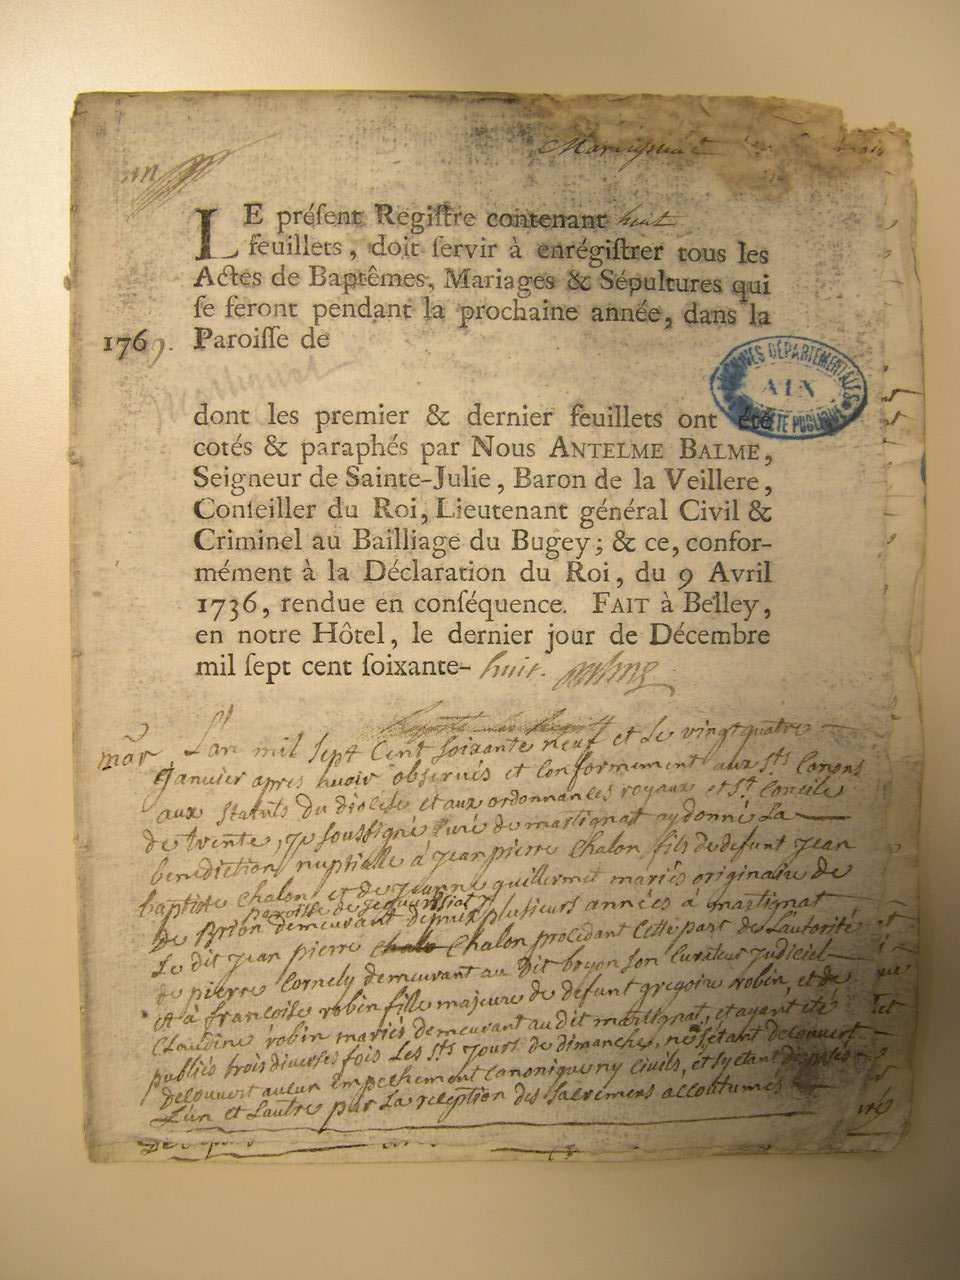 LE préſent Regiſtre contenant huit
feuillets, doit ſervir à enrégiſtrer tous les
Actes de Baptêmes, Mariages & Sépultures qui
ſe feront pendant la prochaine année, dans la
1769. Paroiſſe de
dont les premier & dernier feuillets ont été
cotés & paraphés par Nous ANTELME BALME,
Seigneur de Sainte-Julie, Baron de la Veillere,
Conſeiller du Roi, Lieutenant général Civil &
Criminel au Bailliage du Bugey; & ce, confor-
mément à la Déclaration du Roi, du 9 Avril
1736, rendue en conſéquence. FAIT à Belley,
en notre Hôtel, le dernier jour de Décembre
mil ſept cent ſoixante-huit.
ARCHIVES DÉPARTEMENTALES
AIN
PROPRIÉTÉ PUBLIQUE
mar L'an mil sept Cent soixante neuf et le vingt quatre
janvier apres avoir observés et Conformement aux sts Canons
aux statuts du diocese et aux ordonnances royaux et st Concile
de trente, je soussigné Curé de martignat ay donné La
benediction nuptialle à jean pierre Chalon fils de defunt jean
baptiste Chalon et de jeanne guillermet mariés originaire de
paroisse de
de Brion demeurant depuis plusieurs années à martignat
Le dit jean pierre chalo Chalon procedant Cette part de L'autorité
de pierre Cornely demeurant au dit bryon son Curateur judiciel
et à françoise robin fille majeure de defunt gregoire robin, et de
Claudine robin mariés demeurant au dit martignat, et ayant etés
publiés trois diverses fois Les sts jours de dimanche, ne s'etant decouvert
decouvert aucun Empechement Canonique ny Civils, et s'y etant disposés
L'un et L'autre par La reception des sacremens accoutumés